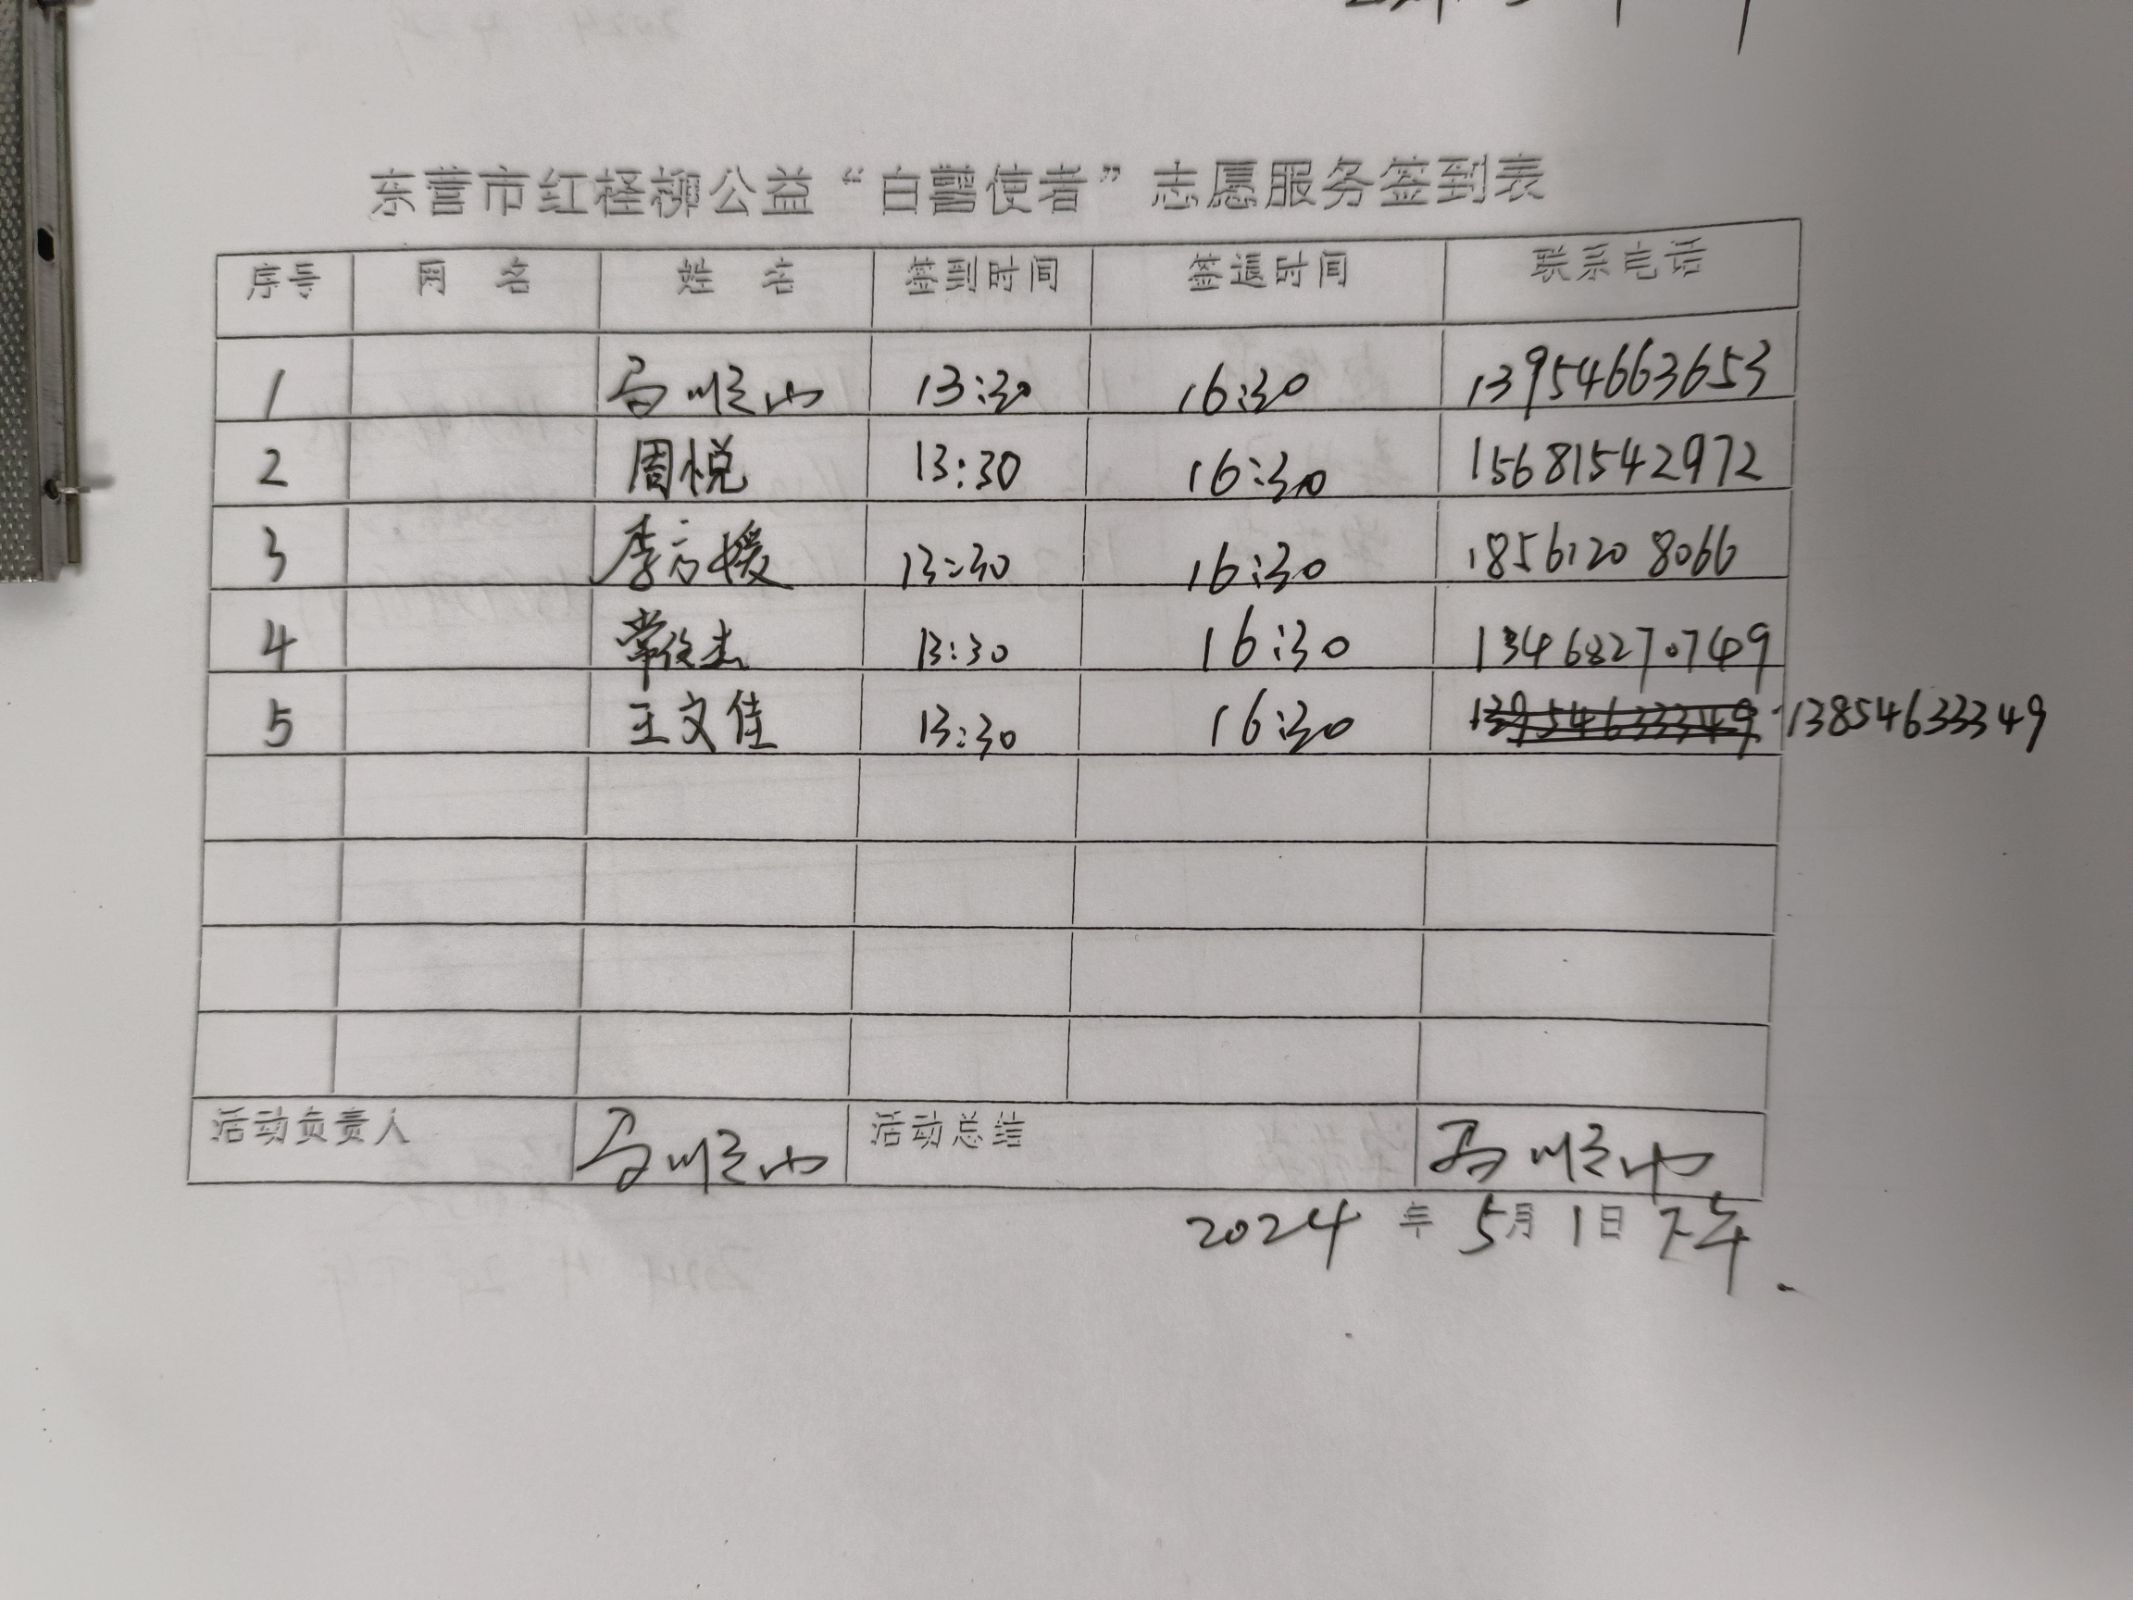 东营市红柽柳公益“白鹭使者”志愿服务签到表
序号 网 名 姓 名 签到时间 签退时间 联系电话
1 马顺山 13:30 16:30 13954663653
2 周悦 13:30 16:30 15681542972
3 李方媛 13:30 16:30 18561208066
4 常俊杰 13:30 16:30 13468270749
5 王文佳 13:30 16:30 13954633349 13854633349
活动负责人 马顺山 活动总结 马顺山
2024 年 5月1日 下午.